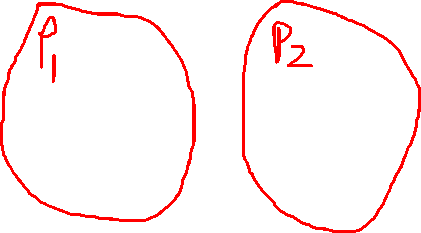 P1
P2